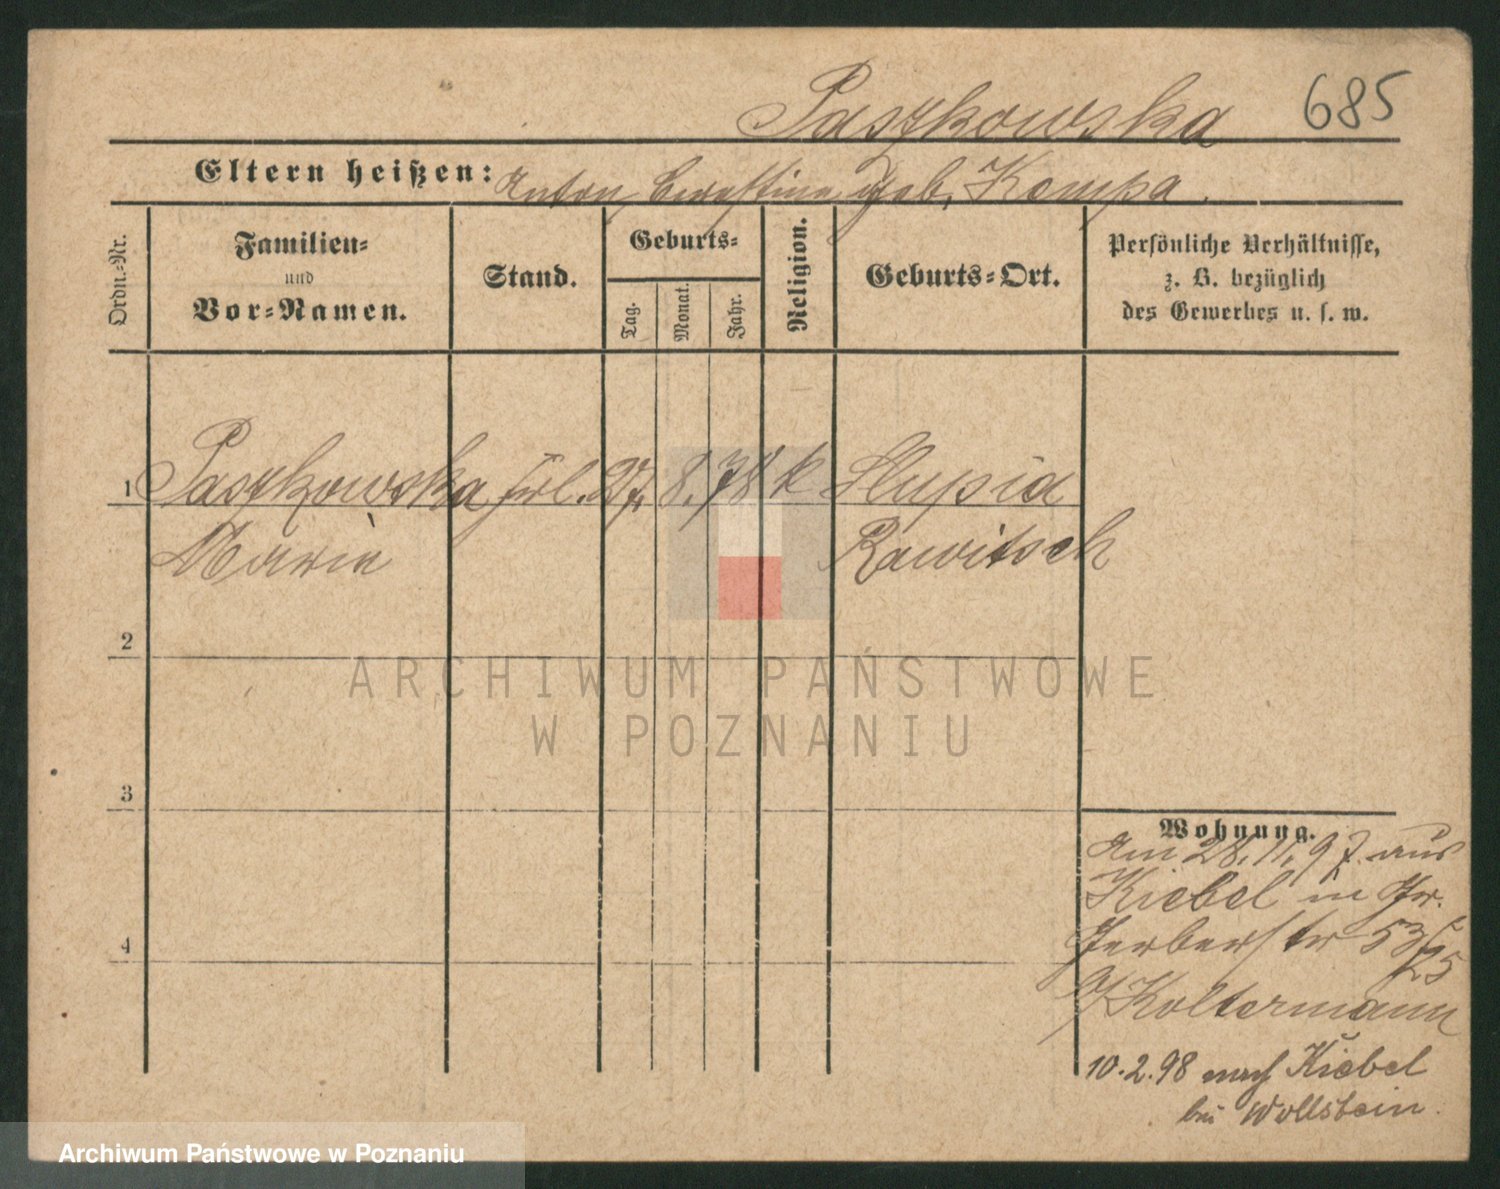 Paszkowska 685
Eltern heißen: Anton, Ernestine geb. Kompa.
Ordn.-Nr.
Familien-
und
Vor-Namen.
Stand.
Geburts-
Tag.
Monat.
Jahr.
Religion.
Geburts-Ort.
Persönliche Verhältnisse,
z. B. bezüglich
des Gewerbes u. s. w.
1 Paszkowska Frl. 27. 8. 78 k Slupia
Marie Rawitsch
2
ARCHIWUM PAŃSTWOWE
W POZNANIU
3
4
Wohnung.
Am 28.11.97. aus
Kiebel in
Gerberstr 53
Koltermann
10.2.98 nach Kiebel
bei Wollstein.
Archiwum Państwowe w Poznaniu